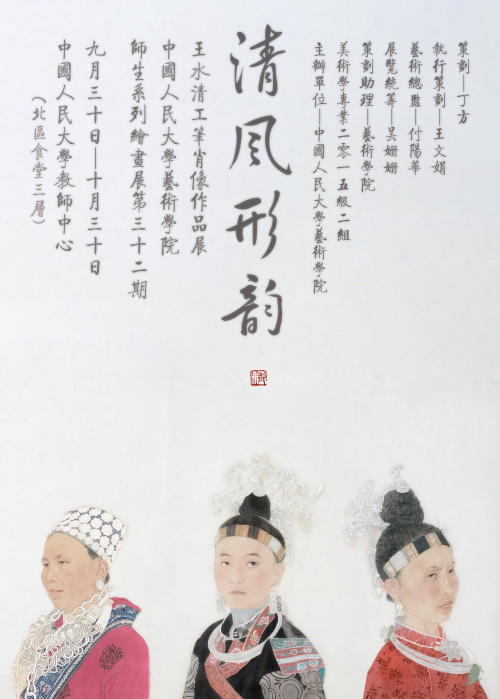 策劃—丁方
執行策劃—王文娟
藝術總監—付陽華
展覽統籌—吳姍姍
策劃助理—藝術學院
美術學專業二零一五級二組
主辦單位—中國人民大學藝術學院
清風形韵
王水清工筆肖像作品展
中國人民大學藝術學院
師生系列繪畫展第三十二期
九月三十日—十月三十日
中國人民大學教師中心
（北區食堂三層）